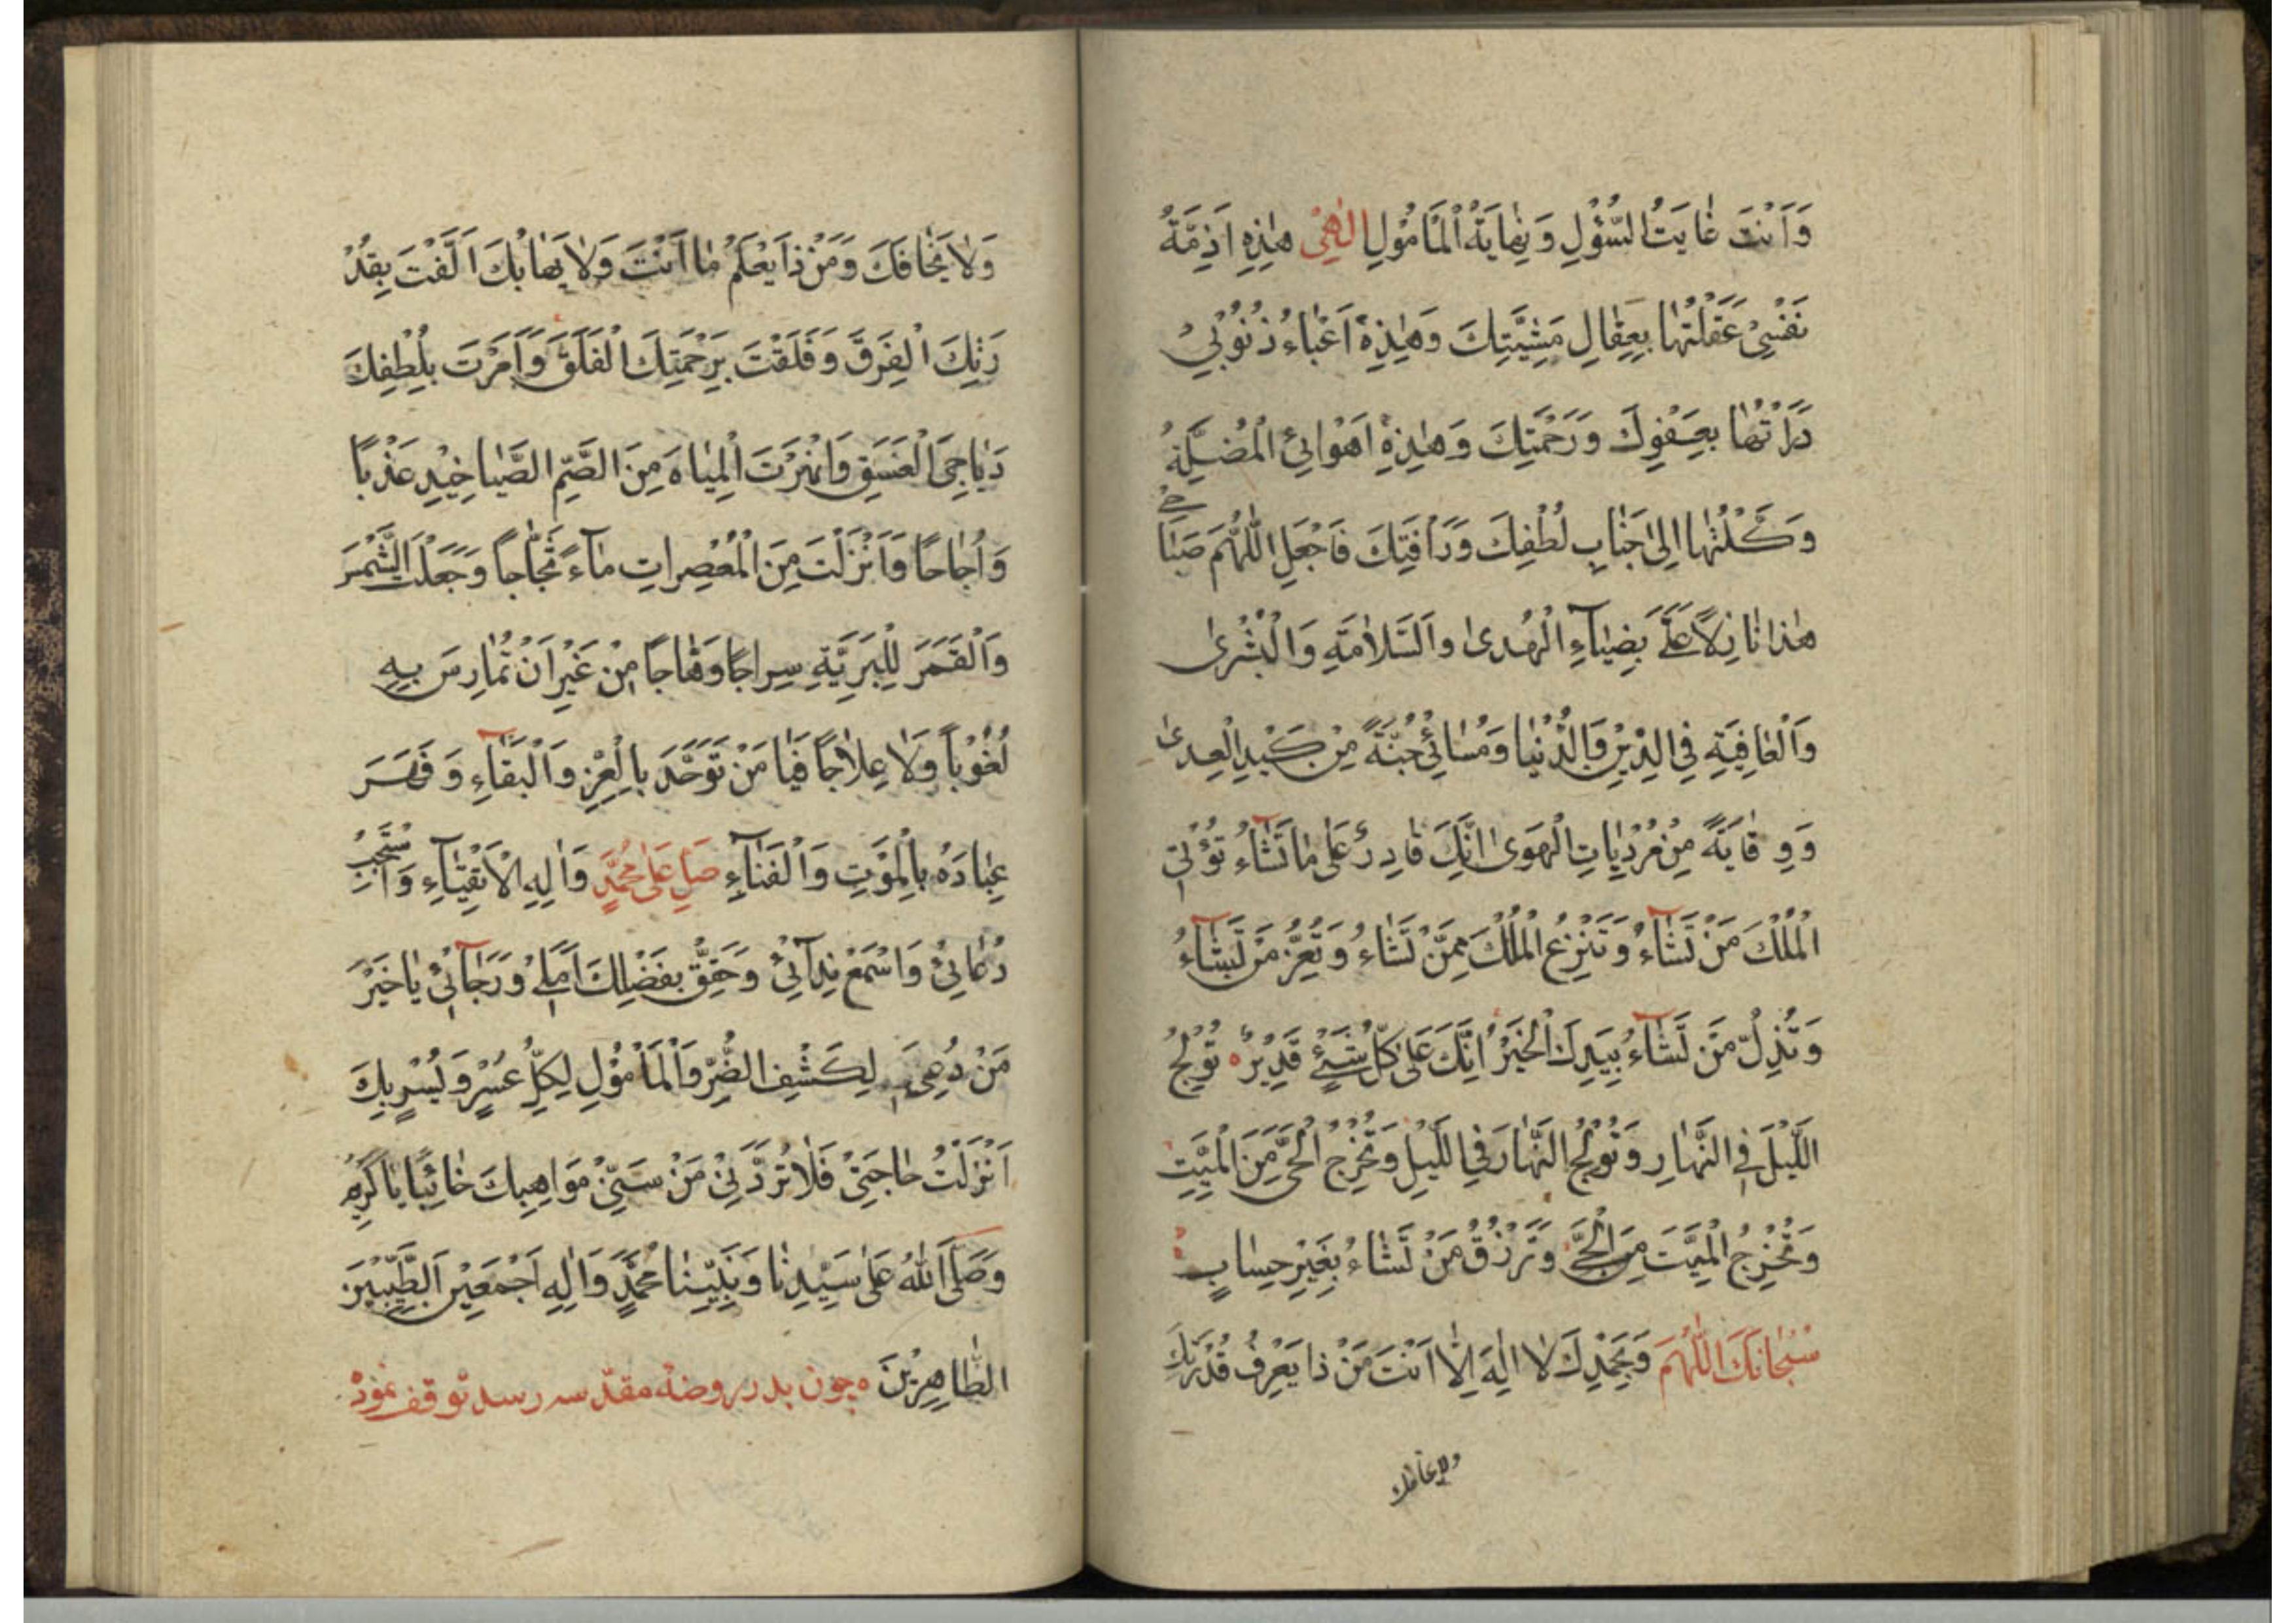 وَاَنْتَ غايَتُ السُّؤْلِ وَنِهايَةُ الْمَاْمُوْلِ اِلٰهِىْ هٰذِهِ اَذِمَّةُ
نَفْسِىْ عَقَلْتُها بِعِقالِ مَشِيَّتِكَ وَهٰذِهٖ اَعْباءُ ذُنُوْبِىْ
دَرَاْتُها بِعَفْوِكَ وَرَحْمَتِكَ وَهٰذِهٖ اَهْوائِىَ الْمُضِلَّةُ
وَكَلْتُها اِلىٰ جَنابِ لُطْفِكَ وَرَاْفَتِكَ فَاجْعَلِ اللّٰهُمَّ صَباحِىْ
هٰذا نازِلاً عَلَىَّ بِضِيآءِ الْهُدىٰ والسَّلامَةِ وَالْبُشْرىٰ
وَالْعافِيَةِ فِى الدِّيْنِ وَالدُّنْيا وَمَسائِىْ جُنَّةً مِنْ كَيْدِ الْعِدىٰ
وَوِقايَةً مِنْ مُرْدِياتِ الْهَوىٰ اِنَّكَ قادِرٌ عَلىٰ ما تَشآءُ تُؤْتِى
الْمُلْكَ مَنْ تَشآءُ وَتَنْزِعُ الْمُلْكَ مِمَّنْ تَشاءُ وَتُعِزُّ مَنْ تَشآءُ
وَتُذِلُّ مَنْ تَشآءُ بِيَدِكَ الْخَيْرُ اِنَّكَ عَلىٰ كُلِّ شَيْءٍ قَدِيْرٌ ه تُوْلِجُ
اللَّيْلَ فِى النَّهارِ وَتُوْلِجُ النَّهارَ فِى اللَّيْلِ وَتُخْرِجُ الْحَىَّ مِنَ الْمَيِّتِ
وَتُخْرِجُ الْمَيِّتَ مِنَ الْحَىِّ وَتَرْزُقُ مَنْ تَشاءُ بِغَيْرِ حِسابٍ
سُبْحانَكَ اللّٰهُمَّ وَبِحَمْدِكَ لا اِلٰهَ اِلّا اَنْتَ مَنْ ذا يَعْرِفُ قُدْرَتَكَ
ولا يخافك
وَلا يَخافَكَ وَمَنْ ذا يَعْلَمُ ما اَنْتَ وَلا يَهابُكَ اَلَّفْتَ بِقُدْ
رَتِكَ الْفِرَقَ وَفَلَقْتَ بِرَحْمَتِكَ الْفَلَقَ وَاَمَرْتَ بِلُطْفِكَ
دَياجِىَ الْغَسَقِ وَانْهَرْتَ الْمِياهَ مِنَ الصُّمِّ الصَّياخِيْدِ عَذْباً
وَاُجاجًا وَاَنْزَلْتَ مِنَ الْمُعْصِراتِ مآءً ثَجّاجاً وَجَعَلْتَ الشَّمْسَ
وَالْقَمَرَ لِلْبَرِيَّةِ سِراجًا وَهّاجاً مِنْ غَيْرِ اَنْ تُمارِسَ بِهٖ
لُغُوْباً وَلا عِلاجًا فَيا مَنْ تَوَحَّدَ بِالْعِزِّ وَالْبَقآءِ وَقَهَرَ
عِبادَهُ بِالْمَوْتِ وَالْفَنآءِ صَلِّ عَلىٰ مُحَمَّدٍ وَاٰلِهِ الْاَتْقِيآءِ وَاسْتَجِبْ
دُعائِىْ وَاسْمَعْ نِدآئِىْ وَحَقِّقْ بِفَضْلِكَ اَمَلِىْ وَرَجآئِىْ يا خَيْرَ
مَنْ دُعِىَ لِكَشْفِ الضُّرِّ وَالْمَاْمُوْلِ لِكُلِّ عُسْرٍ وَيُسْرٍ بِكَ
اَنْزَلْتُ حاجَتِىْ فَلا تَرُدَّنِىْ مِنْ سَنِىِّ مَواهِبِكَ خائِبًا يا كَرِيْمُ
وَصَلَّى اللّٰهُ عَلىٰ سَيِّدِنا وَنَبِيِّنا مُحَمَّدٍ وَاٰلِهٖ اَجْمَعِيْنَ الطَّيِّبِيْنَ
الطّاهِرِيْنَ ه چون بدر روضهٔ مقدّسه رسد توقف نموده